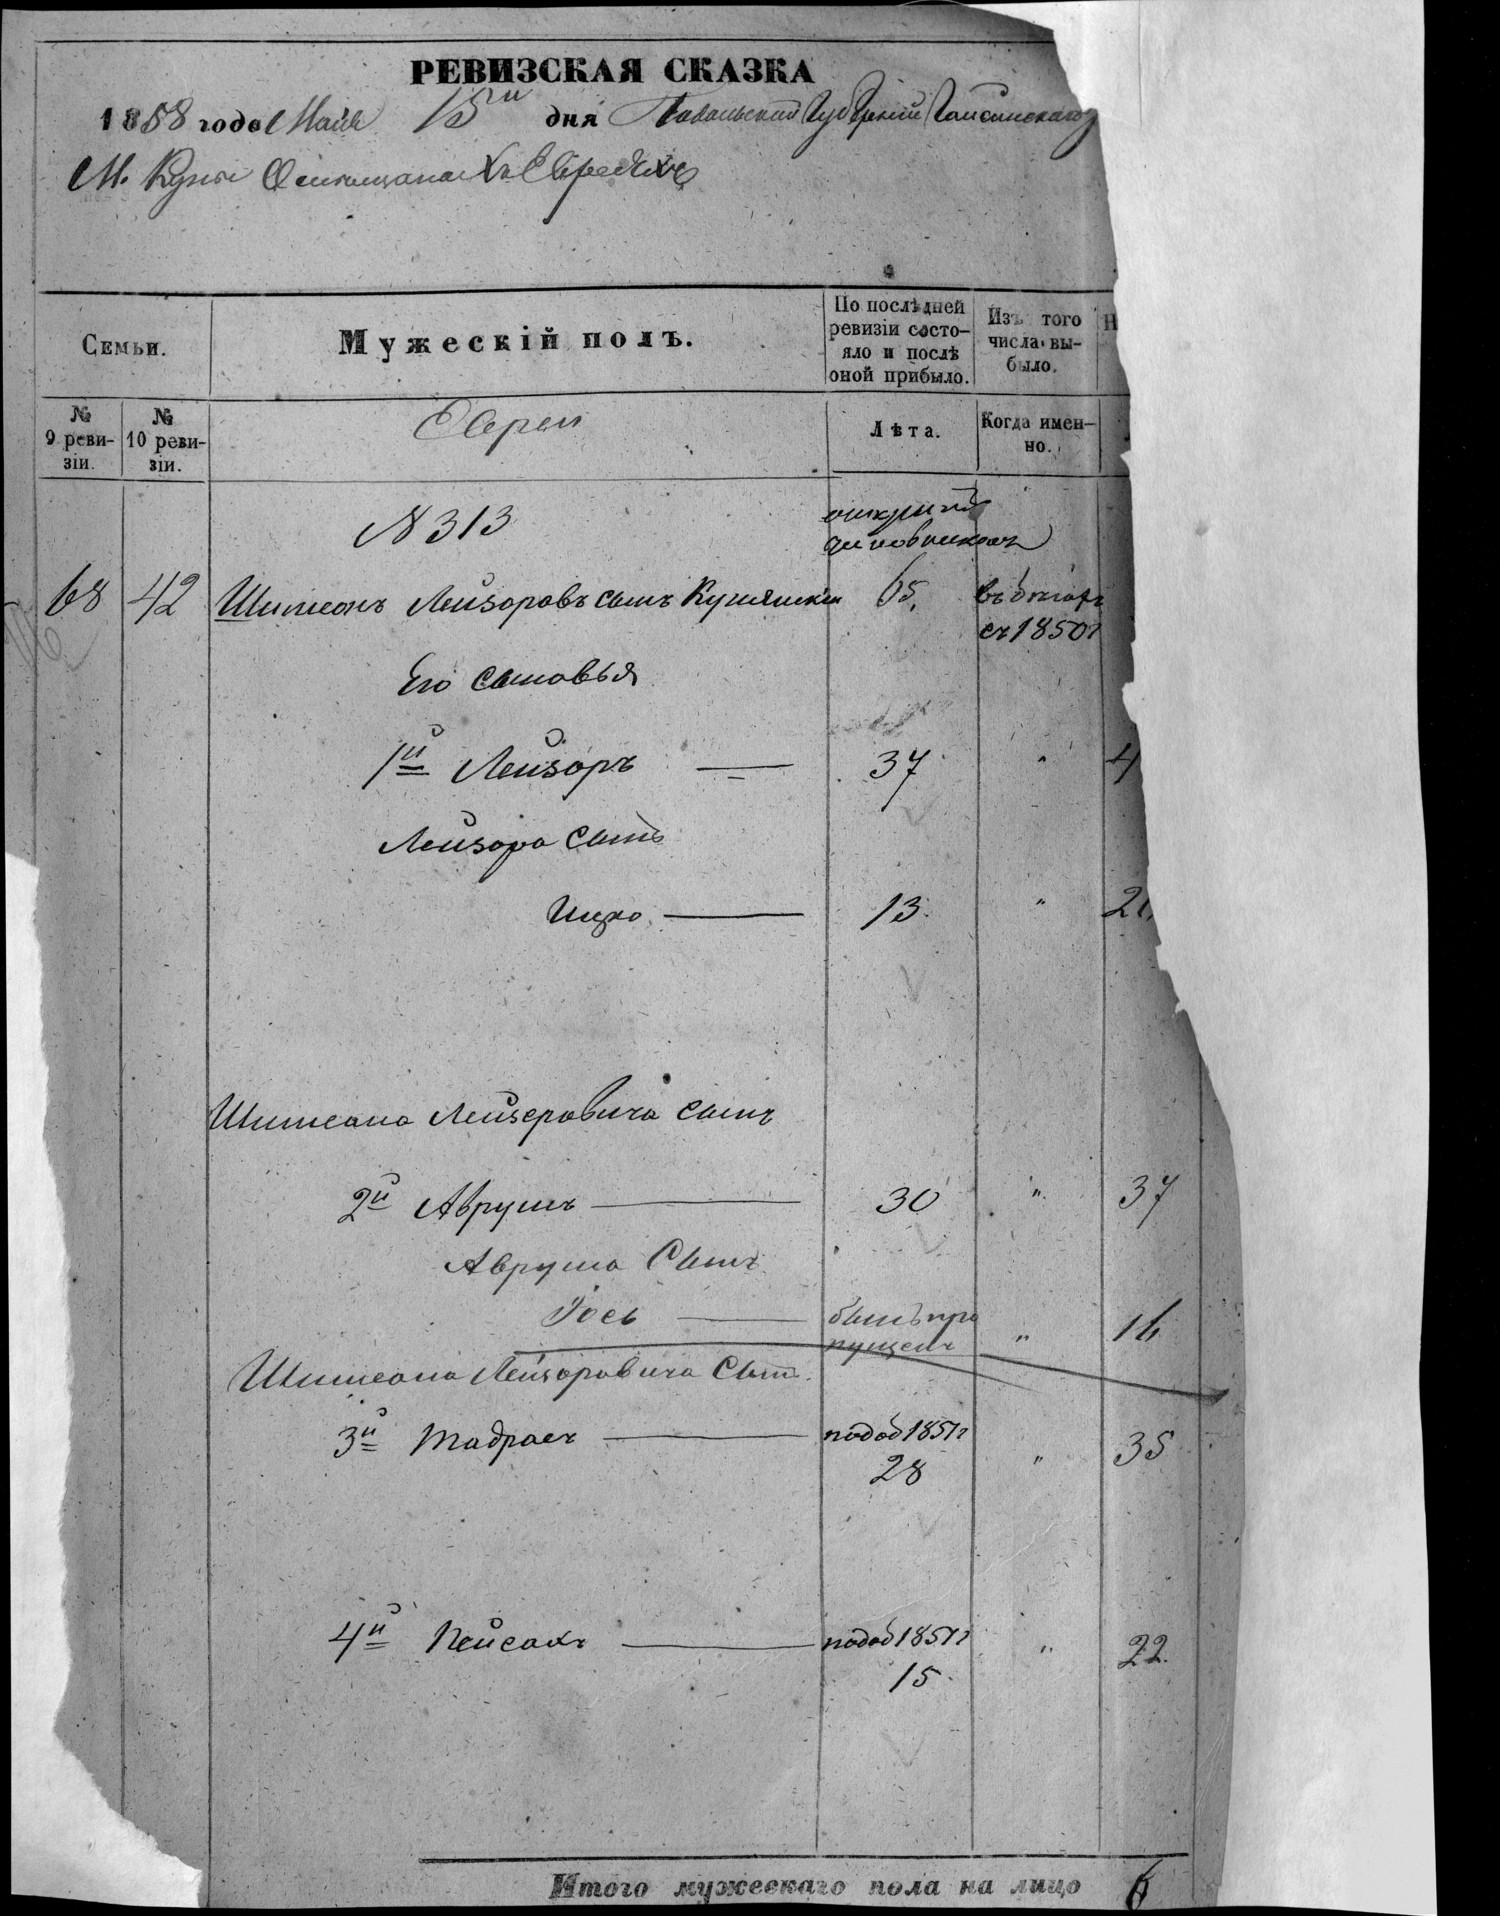 РЕВИЗСКАЯ СКАЗКА
1858 года Мая 15го дня Подольской Губерніи Гайсинского
М. Куны О мещанахъ Евреяхъ
Семьи.
Мужескій полъ.
По послѣдней ревизіи состо-
яло и послѣ
оной прибыло.
Изъ того
числа вы-
было.
Н
№
9 реви-
зіи.
№
10 реви-
зіи.
Евреи
Лѣта.
Когда имен-
но.
N 313
чиновникомъ
68 42 Шимсонъ Лейзоровъ сынъ 65.
съ 1850г
Его сыновья
1й Лейзоръ — 37 " 4
Лейзора сынъ
Ицко — 13. " 21,
Шимсона Лейзеровича сынъ
2й Аврумъ — 30 " 37
Аврума Сынъ
Іось — былъ про
пущенъ " 16
Шимсона Лейзоровича Сынъ.
3й — 1851г
28 " 35
4й Пейсахъ — 1851г
15. " 22.
Итого мужескаго пола на лицо 6